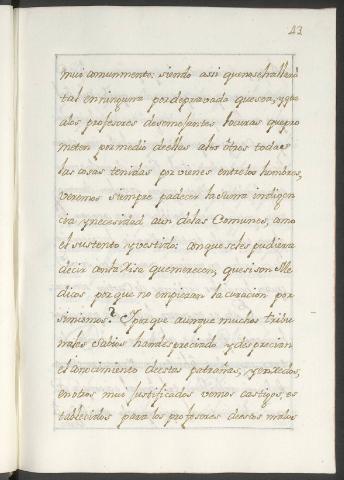 43
mui comunmente: siendo assi que no se hallará
tal en ninguna por depravada que sea, y que
a los profesores de semejantes locuras que pro
meten por medio de ellas a los otros todas
las cosas tenidas por vienes entre los hombres,
veremos siempre padecer la suma indigen
cia y necesidad aun de las Comunes, como
el sustento y vestido: con que se les pudiera
decir con la Risa que merecen, que si son Me
dicos por que no empiezan la curacion por
si mismos? Y por que aunque muchos tribu
nales sabios han despreciado y desprecian
el conocimiento de estas patrañas, y enredos,
en otros mui Justificados vemos castigos, es
tablecidos para los profesores de estas malas